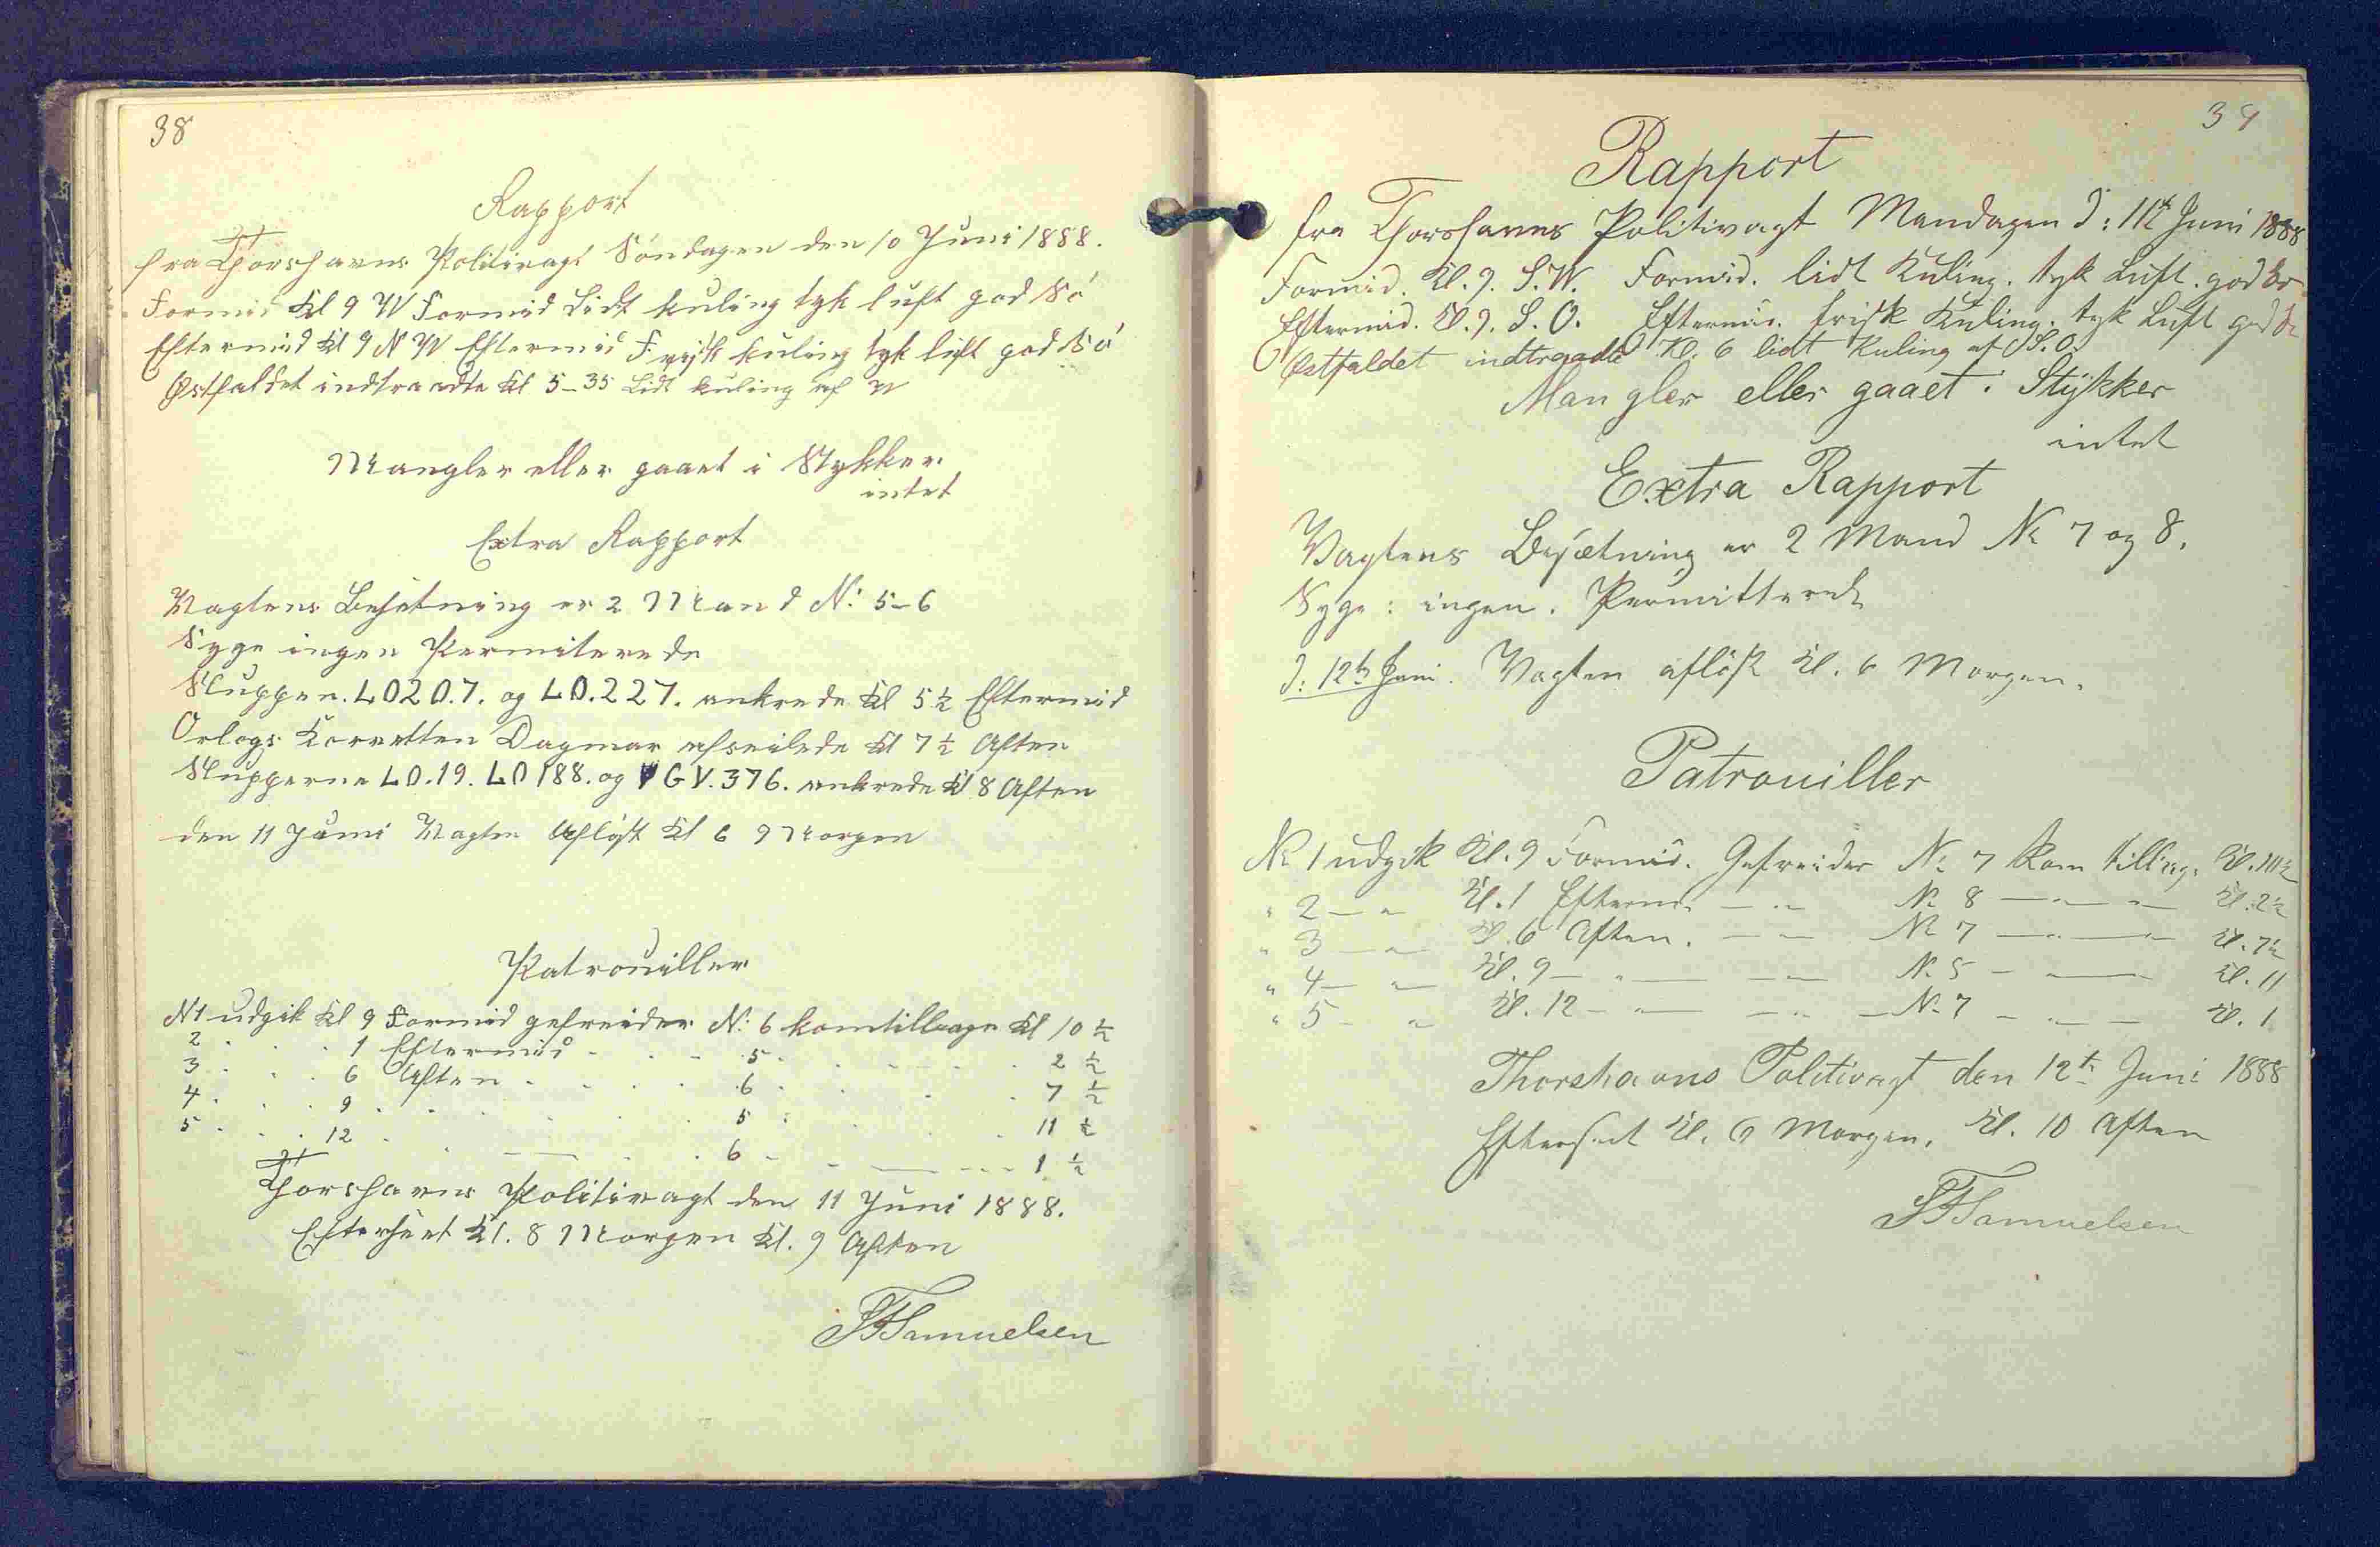 38
Rapport
fra Thorshavns Politivagt Söndagen den 10 Juni 1888.
Formid Kl 9 W Formid Lidt kuling tyk luft god Sö
Eftermid Kl 9 N W Eftermid Frisk kuling tyk luft god Sö
Østfaldet indtraadte Kl 5-35 Lidt kuling af
Mangler eller gaaet i Stykker
intet
Extra Rapport
Vagtens Besætning er 2 Mand N: 5-6
Syge ingen Permiterede
Sluppen. LO207. og LO.227. ankrede Kl 5½ Eftermid
Orlogs Korvetten Dagmar afseilede Kl 7½ Aften
Slupperne LO.19. LO188. og GV.376. ankrede Kl 8 Aften
den 11 Juni Vagten Afløst Kl 6 Morgen
Patrouiller
N1 udgik Kl 9 Formid gefreider N: 6 kom tilbage Kl 10½
2 . . . 1 Eftermid . . . 5 . . . 2½
3 . . . 6 Aften . . . 6 . . . 7½
4 . . . 9 . . . 5 . . . 11½
5 . . . 12 . . . 6 . . . 1½
Thorshavns Politivagt den 11 Juni 1888.
Efterseet Kl. 8 Morgen Kl. 9 Aften
Samuelsen
39
Rapport
fra Thorshavns Politivagt Mandagen d: 11te Juni 1888
Formid. Kl. 9. S.W. Formid. lidt Kuling. tyk Luft. god Sø
Eftermid. Kl. 9. S.O. Eftermid. frisk Kuling. tyk Luft god Sø
Østfaldet indtraadte Kl. 6 lidt Kuling af S.O.
Mangler eller gaaet i Stykker
intet
Extra Rapport
Vagtens Besætning er 2 Mand No 7 og 8.
Syge: ingen. Permitterede
d: 12te Juni. Vagten afløst Kl. 6 Morgen.
Patrouiller
No 1 udgik Kl. 9 Formid. Gefreider No 7 kom tilbag. Kl. 10½
" 2 — " Kl. 1 Eftermid — " — No 8 — " — " — Kl. 2½
" 3 — " Kl. 6 Aften. — " — No 7 — " — " — Kl. 7½
" 4 — " Kl. 9 — " — " — No 5 — " — Kl. 11
" 5 — " Kl. 12 — " — " — No 7 — " — Kl. 1
Thorshavns Politivagt den 12te Juni 1888
Efterseet Kl. 6 Morgen. Kl. 10 Aften
Samuelsen